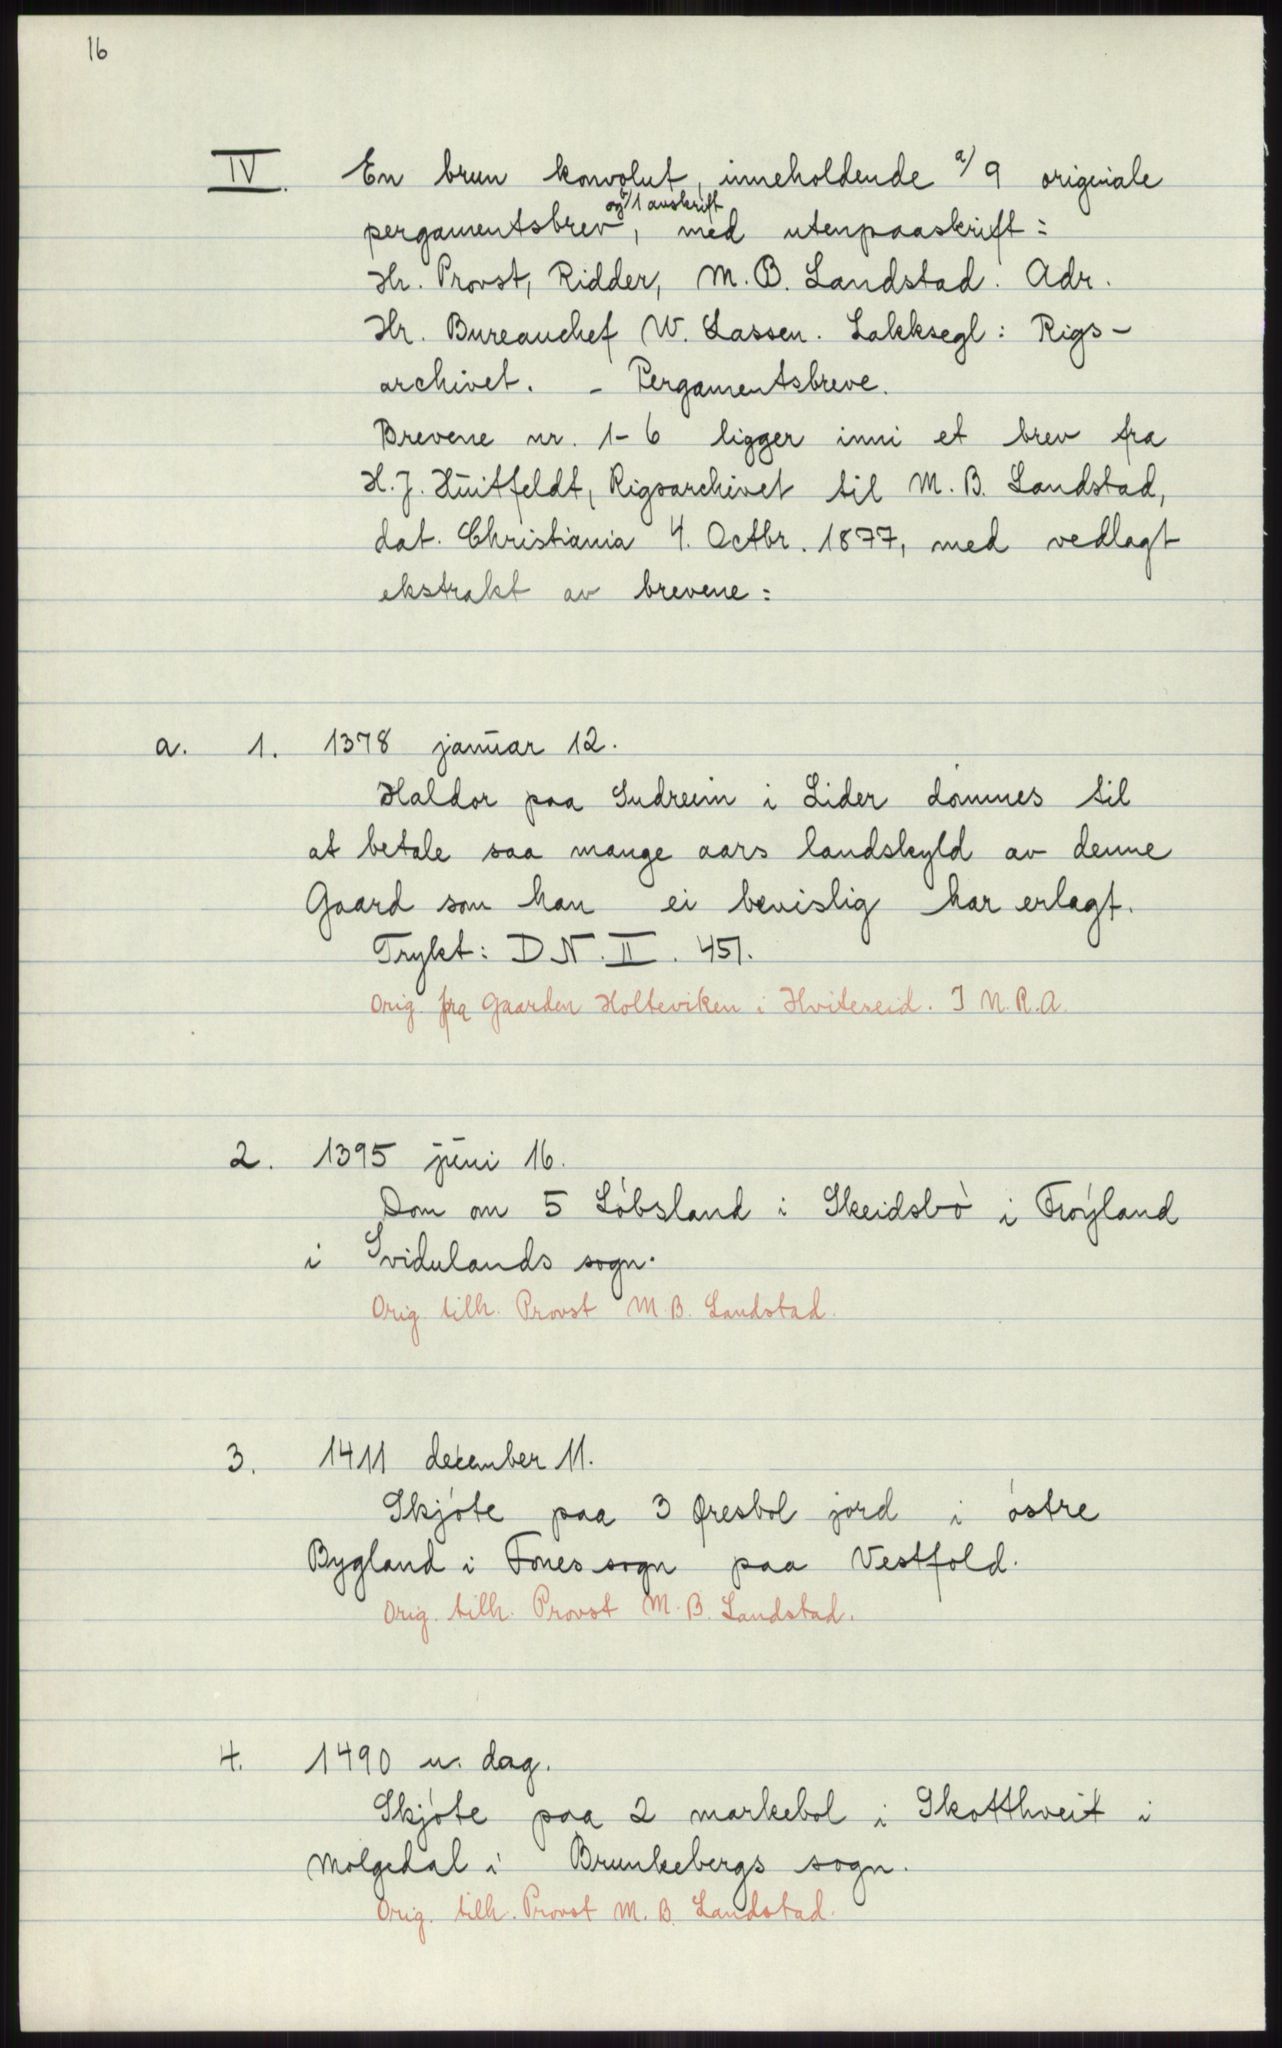 16
IV. En brun konvolut, inneholdende a/ 9 originale
og b/ 1 avskrift
pergamentsbrev, med utenpaaskrift:
Hr. Provst, Ridder, M. B. Landstad. Adr.
Hr. Bureauchef W. Lassen. Lakksegl: Rigs-
archivet. - Pergamentsbreve.
Brevene nr. 1-6 ligger inni et brev fra
H. J. Huitfeldt, Rigsarchivet til M. B. Landstad,
dat. Christiania 4. Octbr. 1877, med vedlagt
ekstrakt av brevene:
a. 1. 1378 januar 12.
Haldor paa Sudreim i Lider dømmes til
at betale saa mange aars landskyld av denne
Gaard som han ei bevislig har erlagt.
Trykt: D N. II. 451.
Orig. fra Gaarden Holteviken i Hviteseid. I N. R. A.
2. 1395 juni 16.
Dom om 5 Løbsland i Skeidsbø i Frøyland
i Svidulands sogn.
Orig. tilh. Provst M. B. Landstad.
3. 1411 december 11.
Skjøte paa 3 Øresbol jord i østre
Bygland i Fones sogn paa Vestfold.
Orig. tilh. Provst M. B. Landstad.
4. 1490 u. dag.
Skjøte paa 2 markebol i Skotthveit i
Molgedal i Brunkebergs sogn.
Orig. tilh. Provst M. B. Landstad.